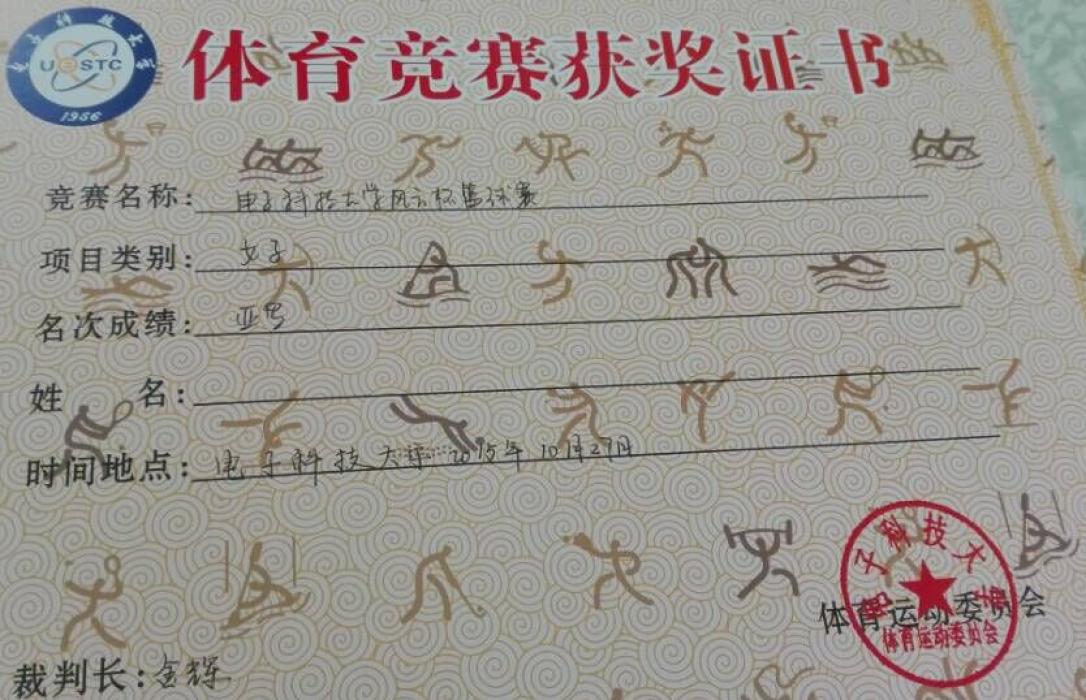 电子科技大学
UESTC
1956
体育竞赛获奖证书
竞赛名称: 电子科技大学风云杯篮球赛
项目类别: 女子
名次成绩: 亚军
姓 名:
时间地点: 电子科技大学 2015年10月29日
电子科技大学
体育运动委员会
体育运动委员会
裁判长: 金辉